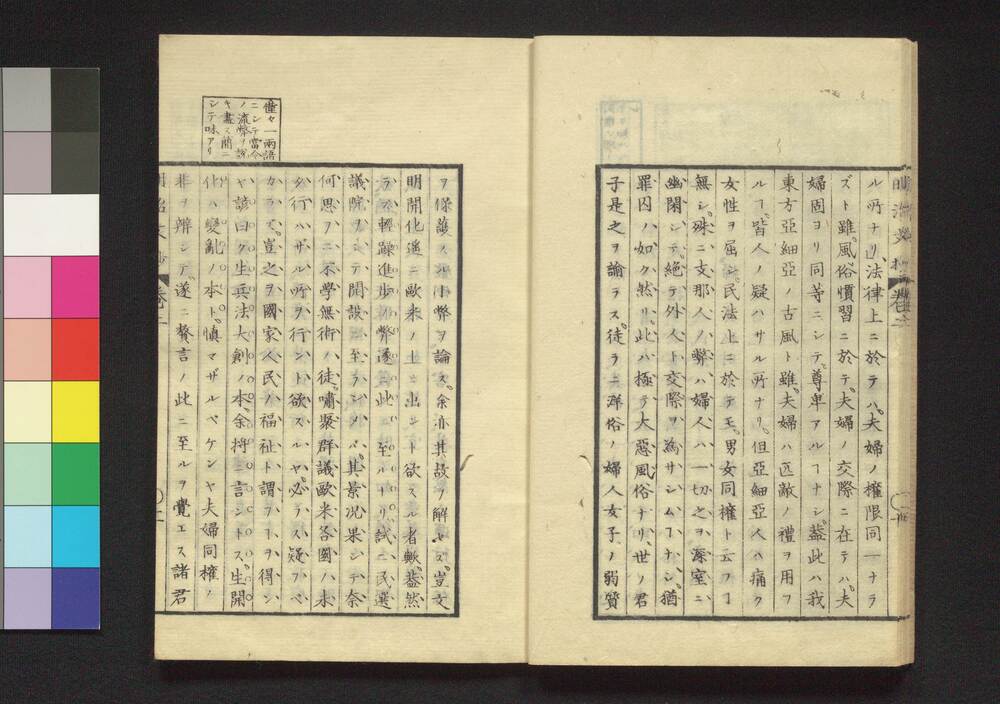 ル所ナリ、法律上ニ於テハ、夫婦ノ権限同一ナラ
ズト雖、風俗慣習ニ於テ、夫婦ノ交際ニ在テハ、夫
婦固ヨリ同等ニシテ、尊卑アルヿナシ、蓋此ハ我
東方亞細亞ノ古風ト雖、夫婦ハ匹敵ノ禮ヲ用フ
ルヿ、皆人ノ疑ハサル所ナリ、但亞細亞人ハ痛ク
女性ヲ屈シ、民法上ニ於テモ、男女同権ト云フヿ
無シ、殊ニ支那人ノ弊ハ婦人ハ一切之ヲ深室ニ
幽閉シテ、絶テ外人ト交際ヲ為サシムヿナシ、猶
罪囚ノ如ク然リ、此ハ極テ大惡風俗ナリ、世ノ君
子是之ヲ論ラス、徒ラニ洋俗ノ婦人女子ノ弱質
ヲ保護スル小弊ヲ論ス、余亦其故ヲ解セズ、豈文
明開化遥ニ歐米ノ上ニ出ント欲スル者歟、蓋然
ラス、輕躁進歩ノ弊遂ニ此ニ至ルナリ、試ニ民選
議院ヲシテ開設ニ至ラシメバ、其景况果シテ奈
何思フニ不學無術ノ徒、嘯聚群議歐米各國ハ未
タ行ハザル所ヲ行ント欲スルヤ、必テス疑フベ
カラズ、豈之ヲ國家人民ノ福祉ト謂フヿヲ得ン
ヤ諺曰ク生兵法大創ノ本、余将ニ言ントス、生開
化ハ變亂ノ本ト、慎マザルベケンヤ夫婦同権ノ
非ヲ辨シテ、遂ニ贅言ノ此ニ至ルヲ覺エス諸君
僅々一兩語
ニシテ當今
ノ流弊ヲ説
キ盡ス簡ニ
シテ味アリ